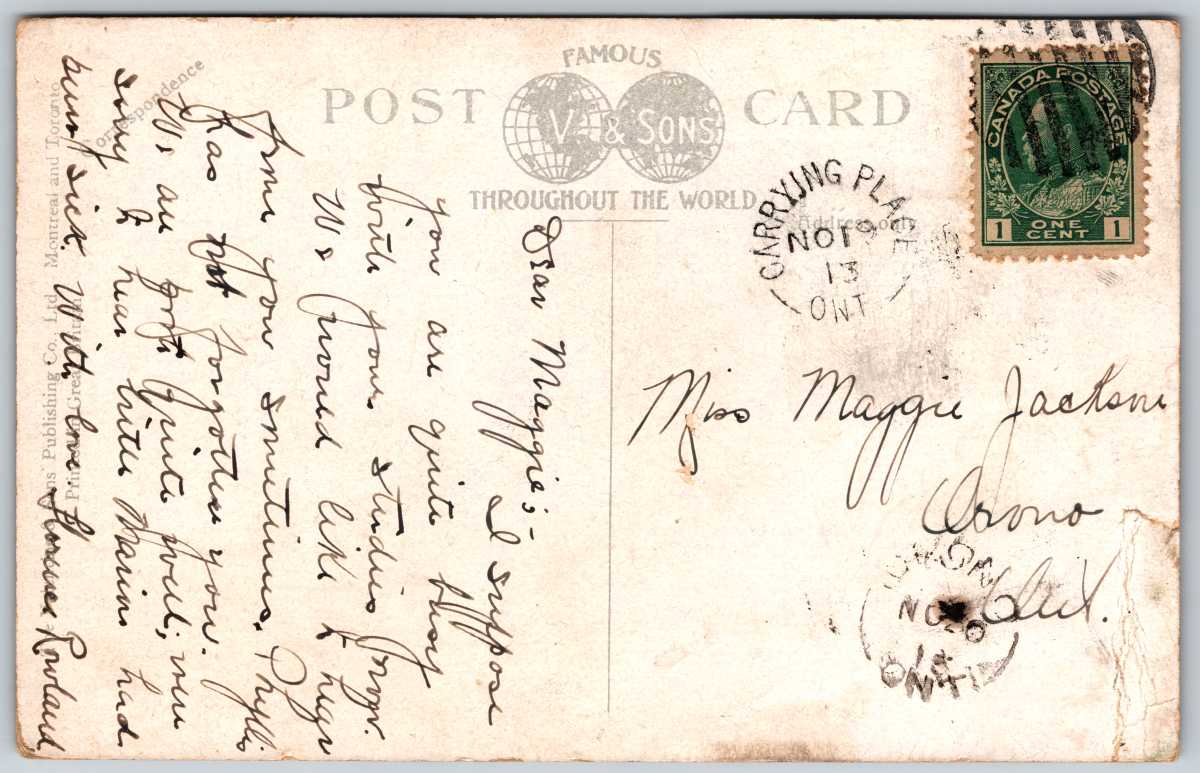 FAMOUS
POST CARD
V & SONS
THROUGHOUT THE WORLD
Correspondence
Address only
CANADA POSTAGE
1 ONE CENT 1
CARRYING PLACE
NO 19
13
ONT
Miss Maggie Jackson
Orono
Ont.
ORONO
NO 20
13
ONT
Dear Maggie:-
I suppose
you are quite busy
with your studies now.
We would like to hear
from you sometimes. Phyllis
has not forgotten you.
We are quite well; were
sorry to hear little Marion had
been sick. With love.
Rowland
Sons Publishing Co., Ltd. Montreal and Toronto
Printed in Great Britain